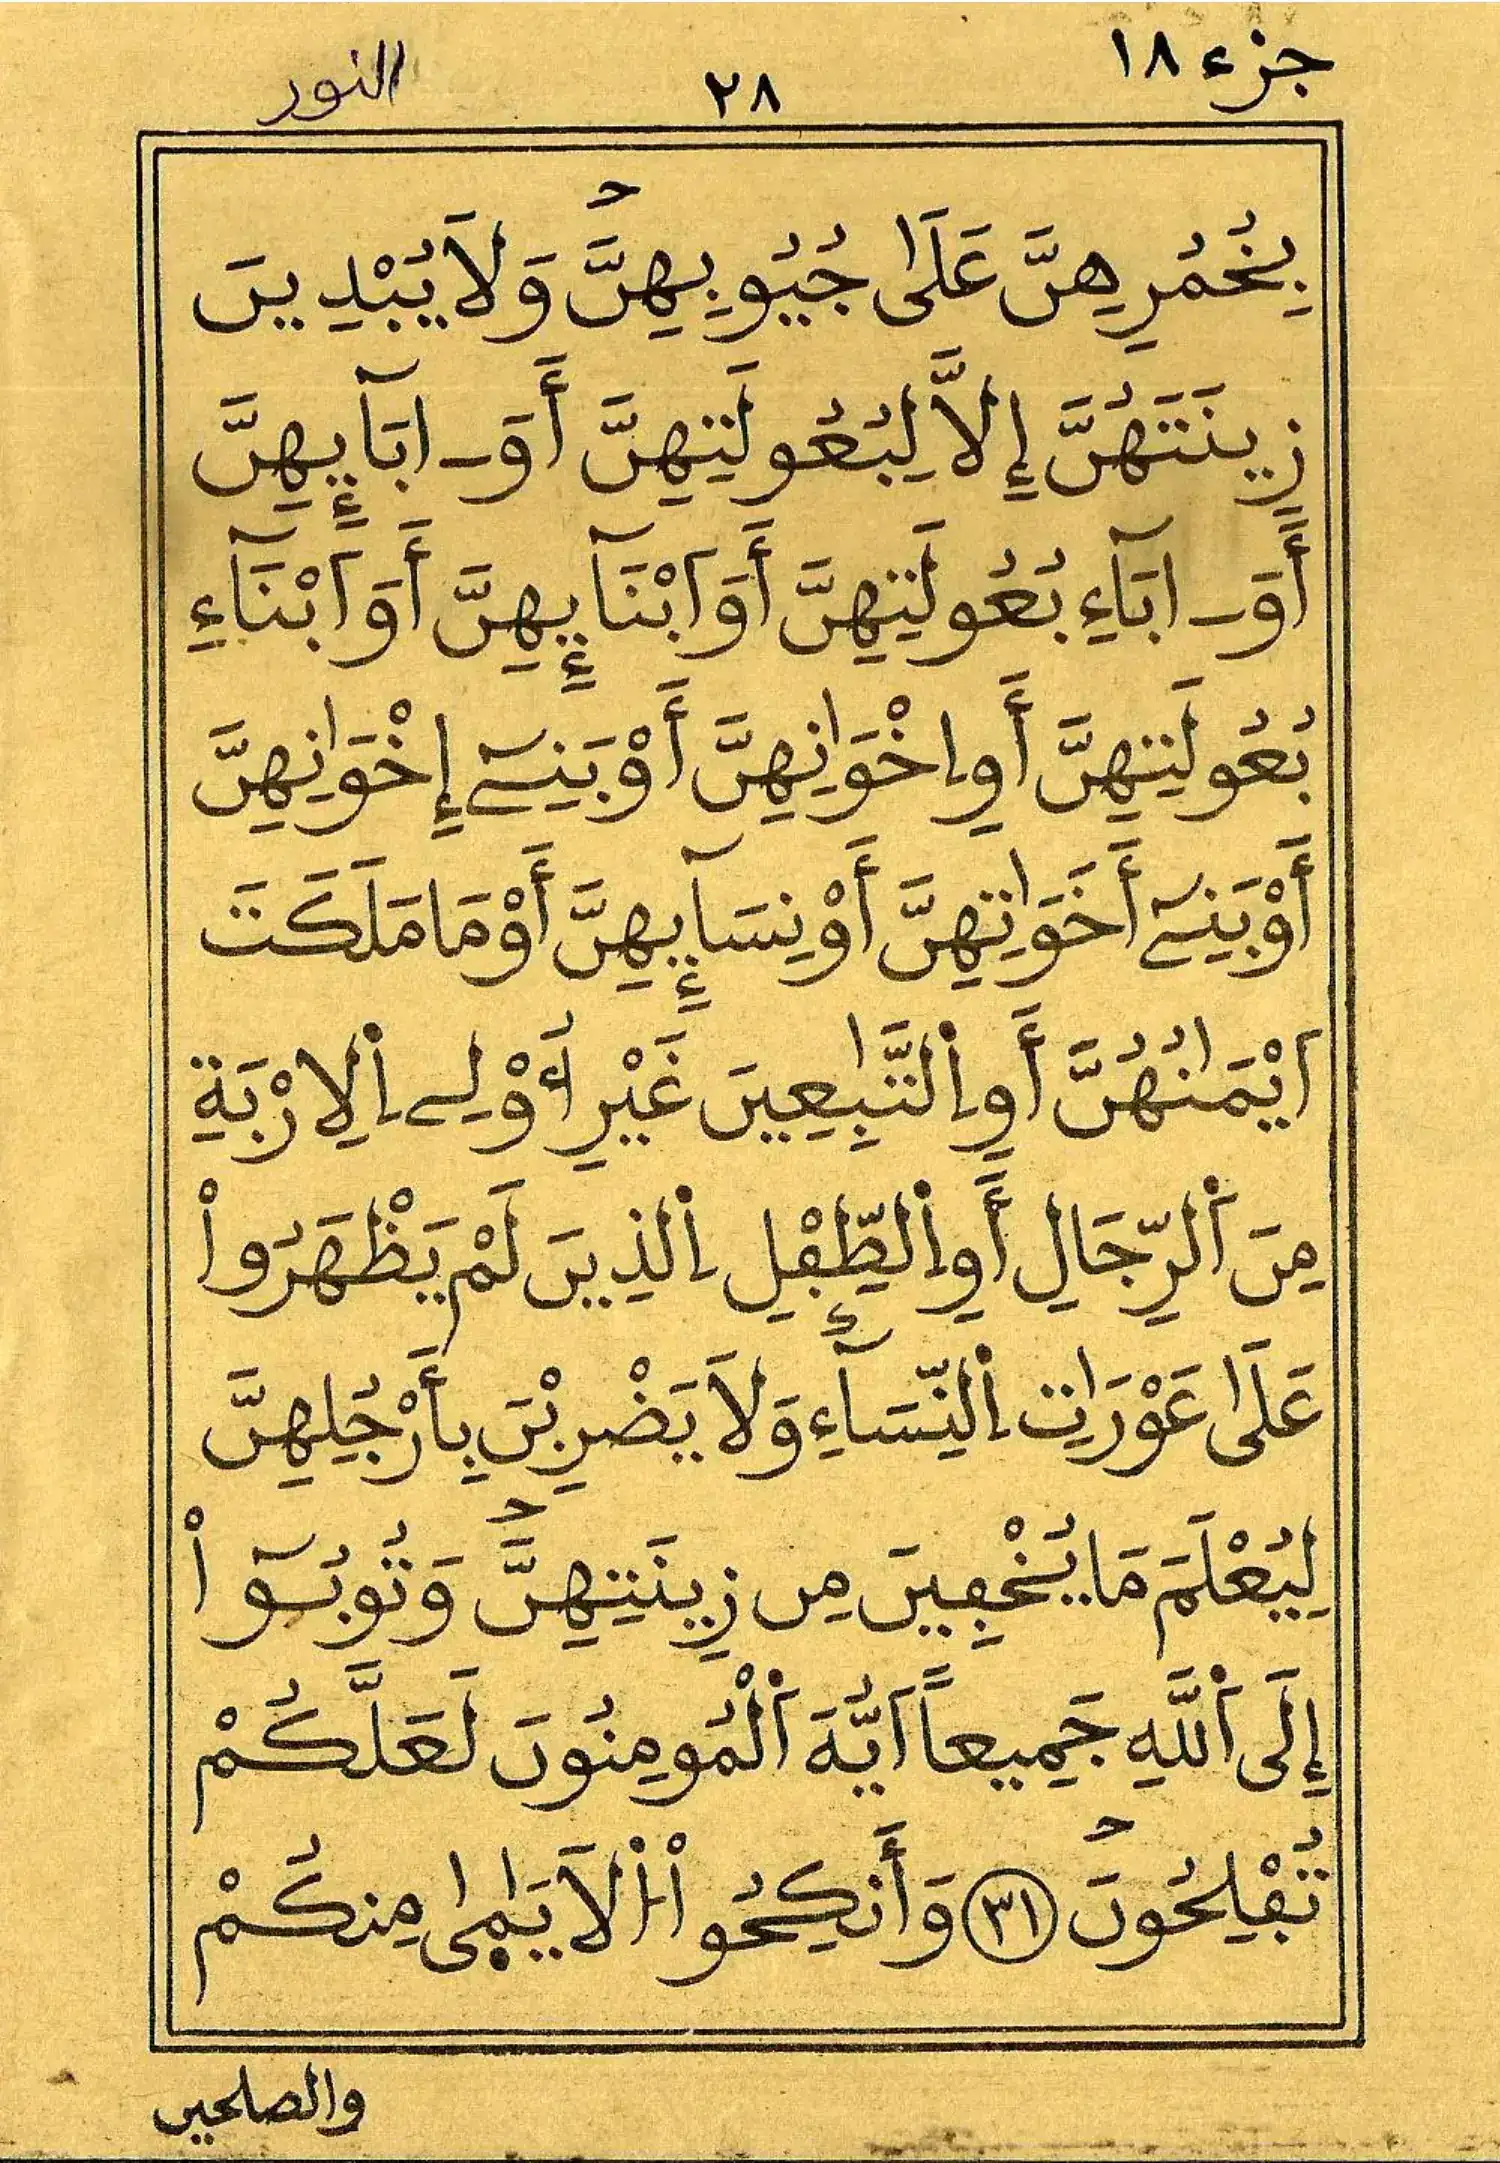 جزء ١٨
٢٨
النور
بِخُمُرِهِنَّ عَلَىٰ جُيُوبِهِنَّ وَلَا يُبْدِينَ
زِينَتَهُنَّ إِلَّا لِبُعُولَتِهِنَّ أَوَ ـ ابَآئِهِنَّ
أَوَ ـ ابَآءِ بُعُولَتِهِنَّ أَوَ اَبْنَآئِهِنَّ أَوَ اَبْنَآءِ
بُعُولَتِهِنَّ أَوِ اِخْوَٰنِهِنَّ أَوْ بَنِےٓ إِخْوَٰنِهِنَّ
أَوْ بَنِےٓ أَخَوَٰتِهِنَّ أَوْ نِسَآئِهِنَّ أَوْ مَا مَلَكَتَ
اَيْمَٰنُهُنَّ أَوِ اِ۬لتَّٰبِعِينَ غَيْرِ أُوْلِے اِ۬لِارْبَةِ
مِنَ اَ۬لرِّجَالِ أَوِ اِ۬لطِّفْلِ اِ۬لذِينَ لَمْ يَظْهَرُواْ
عَلَىٰ عَوْرَٰتِ اِ۬لنِّسَآءِ وَلَا يَضْرِبْنَ بِأَرْجُلِهِنَّ
لِيُعْلَمَ مَا يُخْفِينَ مِن زِينَتِهِنَّ وَتُوبُوٓاْ
إِلَى اَ۬للَّهِ جَمِيعاً اَيُّهَ اَ۬لْمُومِنُونَ لَعَلَّكُمْ
تُفْلِحُونَ ٣١ وَأَنكِحُواْ اُ۬لَايَٰمَىٰ مِنكُمْ
والصلحين